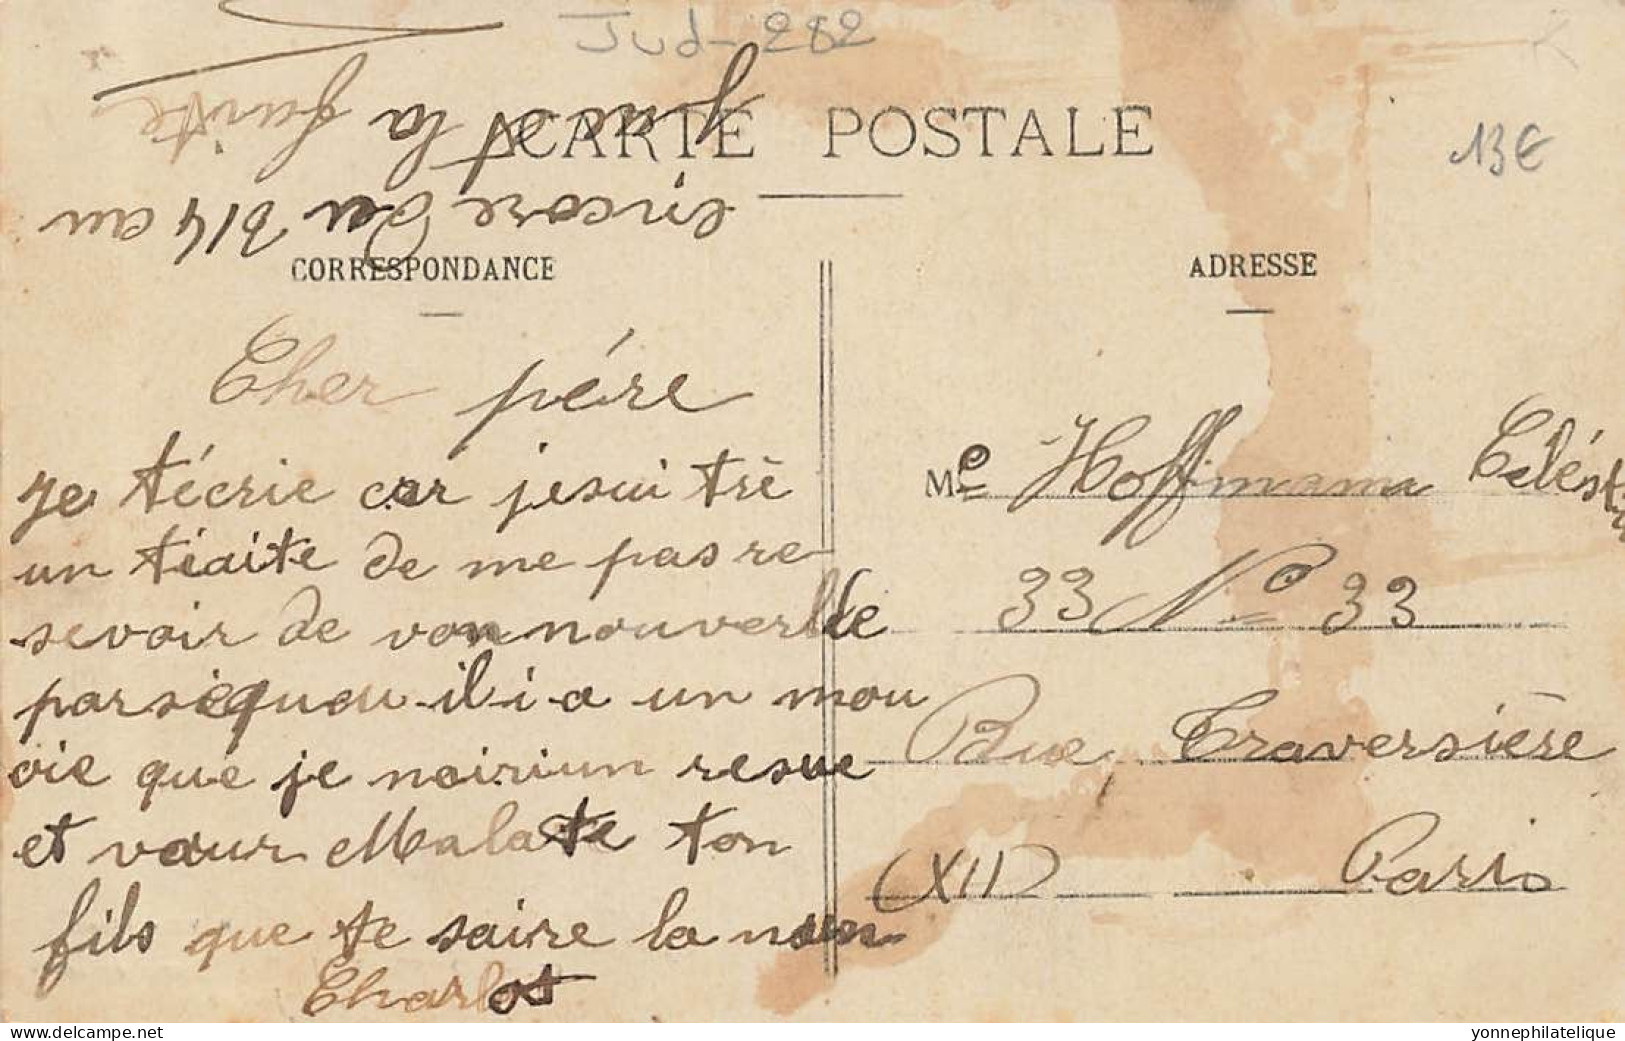 Jud-282
13€
CARTE POSTALE
encore du 314 au
la suite
CORRESPONDANCE
ADRESSE
Cher père
Je técrie car je sui trè
un tiaite de me pas re
sevoir de von nouverlle
parsequeu il i a un mou
oie que je noiriun resue
et vœur Malate ton
fils que te saire la mein
Charlot
Me Hoffmann Célest
33 No 33
Rue Traversière
(XII) Paris
www.delcampe.net
yonnephilatelique